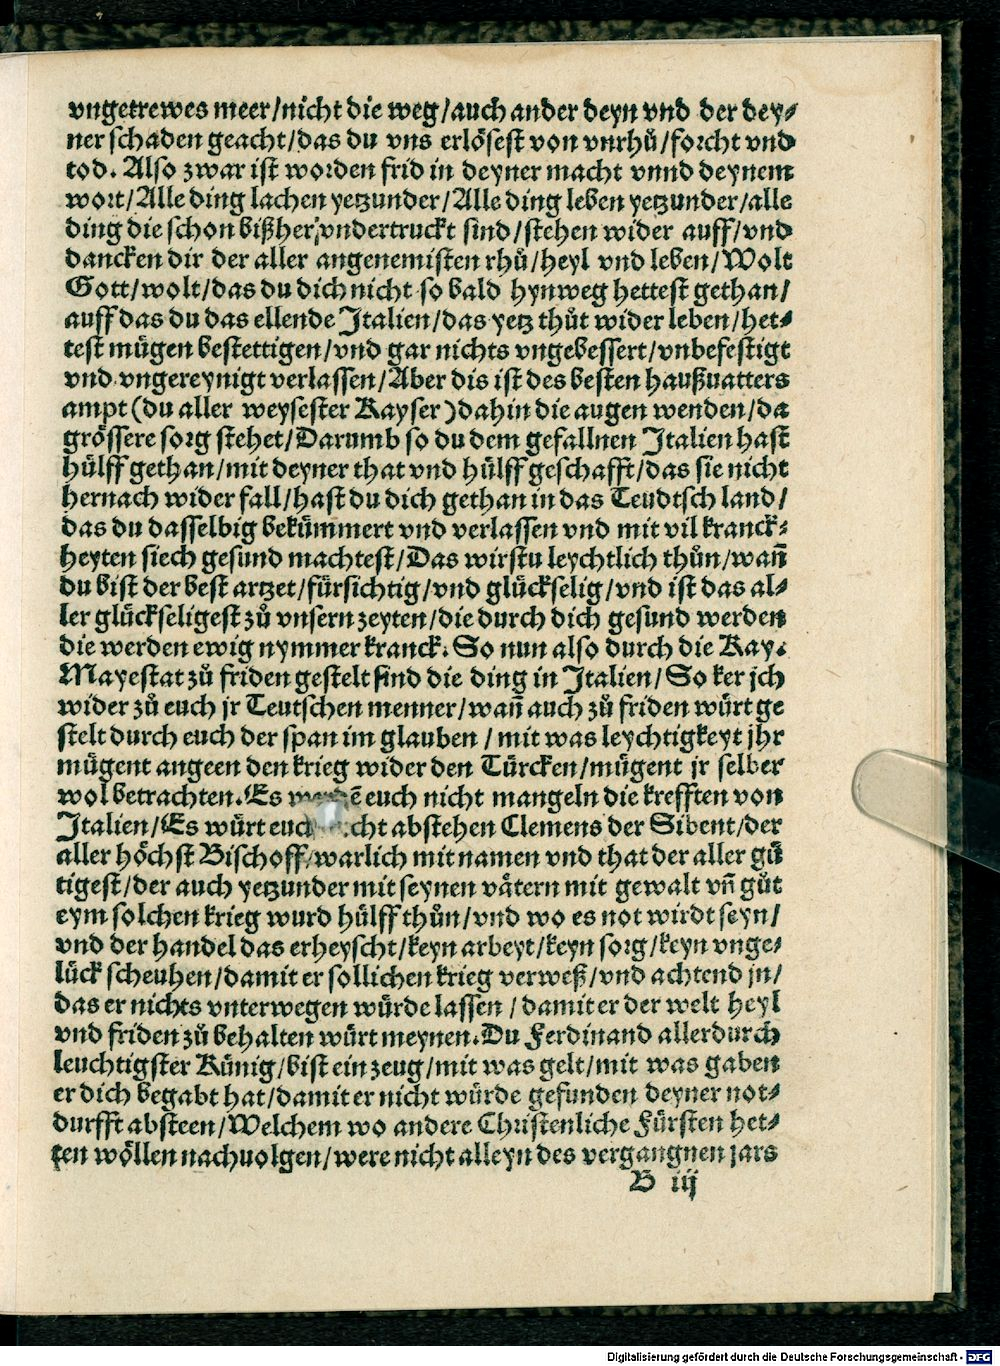 vngetrewes meer/nicht die weg/auch ander deyn vnd der dey⸗
ner schaden geacht/das du vns erlösest von vnrhů/forcht vnd
tod. Also zwar ist worden frid in deyner macht vnnd deynem
wort/Alle ding lachen yetzunder/Alle ding leben yetzunder/alle
ding die schon bißher/vndertruckt sind/stehen wider auff/vnd
dancken dir der aller angenemisten rhů/heyl vnd leben/Wolt
Gott/wolt/das du dich nicht so bald hynweg hettest gethan/
auff das du das ellende Italien/das yetz thůt wider leben/het⸗
test mügen bestettigen/vnd gar nichts vngebessert/vnbefestigt
vnd vngereynigt verlassen/Aber dis ist des besten haußuatters
ampt (du aller weysester Kayser) dahin die augen wenden/da
grössere sorg stehet/Darumb so du dem gefallnen Italien hast
hülff gethan/mit deyner that vnd hülff geschafft/das sie nicht
hernach wider fall/hast du dich gethan in das Teudtsch land/
das du dasselbig bekümmert vnd verlassen vnd mit vil kranck⸗
heyten siech gesund machtest/Das wirstu leychtlich thůn/wañ
du bist der best artzet/fürsichtig/vnd glückselig/vnd ist das al⸗
ler glückseligest zů vnsern zeyten/die durch dich gesund werden
die werden ewig nymmer kranck. So nun also durch die Kay.
Mayestat zů friden gestelt sind die ding in Italien/So ker jch
wider zů euch jr Teutschen menner/wañ auch zů friden würt ge
stelt durch euch der span im glauben / mit was leychtigkeyt jhr
mügent angeen den krieg wider den Türcken/mügent jr selber
wol betrachten. Es euch nicht mangeln die krefften von
Italien/Es würt abstehen Clemens der Sibent/der
aller höchst Bischoff/warlich mit namen vnd that der aller gü
tigest/der auch yetzunder mit seynen vätern mit gewalt vñ gůt
eym solchen krieg wurd hülff thůn/vnd wo es not wirdt seyn/
vnd der handel das erheyscht/keyn arbeyt/keyn sorg/keyn vnge⸗
lück scheuhen/damit er sollichen krieg verweß/vnd achtend jn/
das er nichts vnterwegen würde lassen / damit er der welt heyl
vnd friden zů behalten würt meynen. Du Ferdinand allerdurch
leuchtigster Künig/bist ein zeug/mit was gelt/mit was gaben
er dich begabt hat/damit er nicht würde gefunden deyner not⸗
durfft absteen/Welchem wo andere Christenliche Fürsten het⸗
ten wöllen nachuolgen/were nicht alleyn des vergangnen jars
B iij
Digitalisierung gefördert durch die Deutsche Forschungsgemeinschaft - DFG